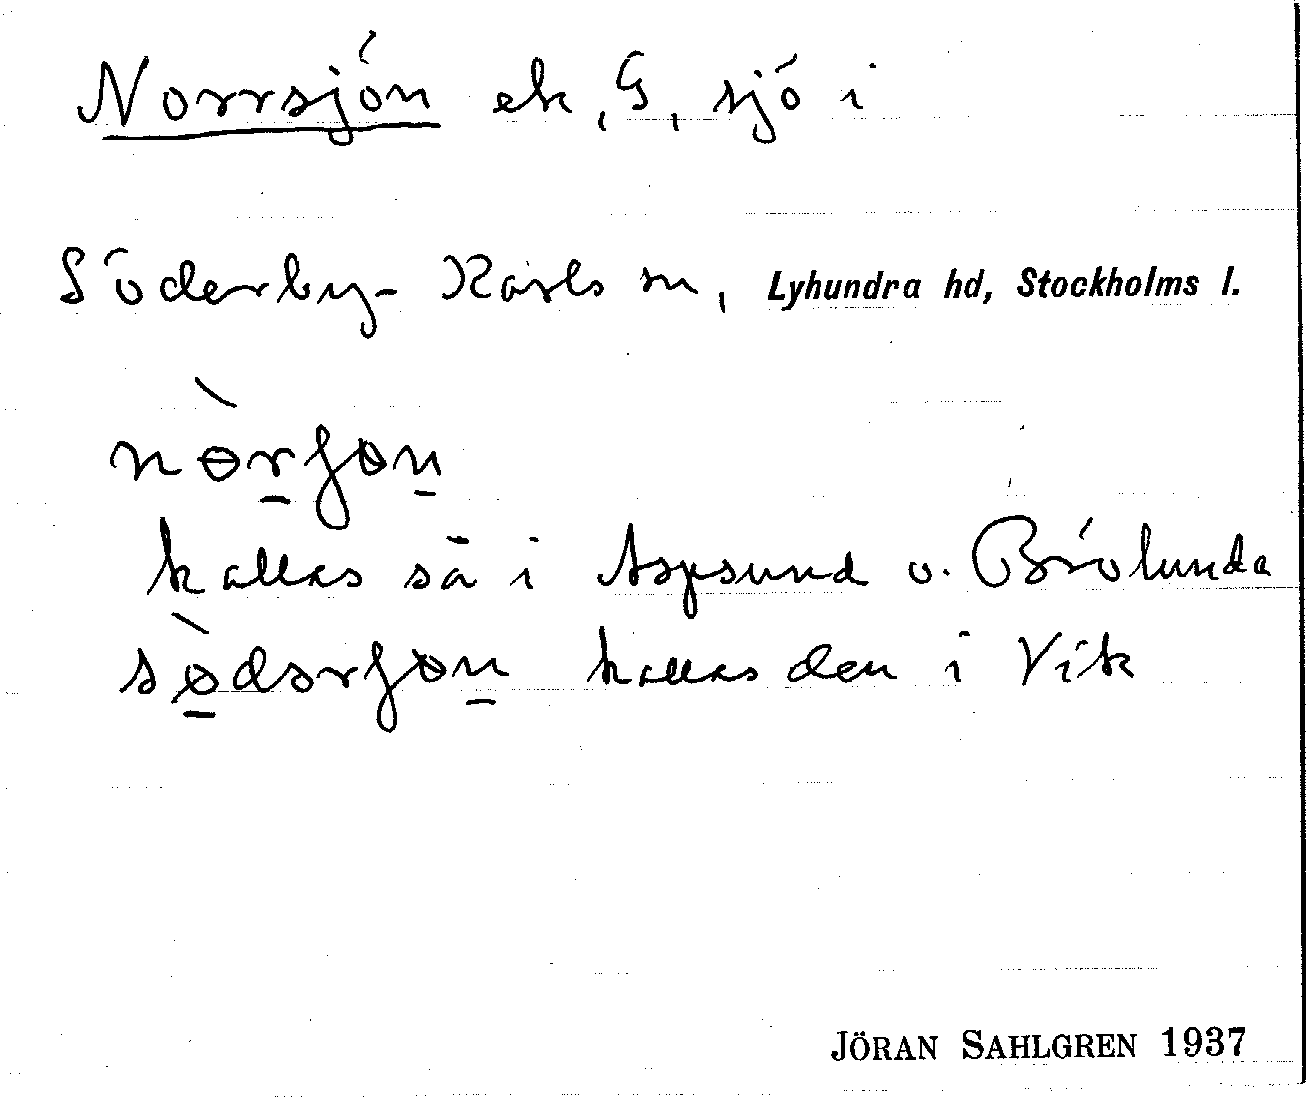 Norrsjön ek, G, sjö i
Söderby-Karls sn, Lyhundra hd, Stockholms l.
nɵ̀r̲ʃɵn̲
kallas så i Aspsund o. Brölunda
sø̲̀dərʃɵn̲ kallas den i Vik
JÖRAN SAHLGREN 1937